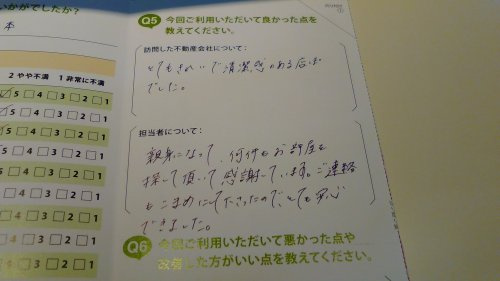 いかがでしたか？
本
2 やや不満　1 非常に不満
5□4□3□2□1
5□4□3□2□1
5□4□3□2□1
5□4□3□2□1
5□4□3□2□1
5□4□3□2□1
5□4□3□2□1
5□4□3□2□1
Q5 今回ご利用いただいて良かった点を
教えてください。
訪問した不動産会社について：
とてもきれいで清潔感のある店舗
でした。
担当者について：
親身になって、何件もお部屋を
探して頂いて感謝しています。ご連絡
もこまめにして下さったので、とても安心
できました。
Q6 今回ご利用いただいて悪かった点や
改善した方がいい点を教えてください。